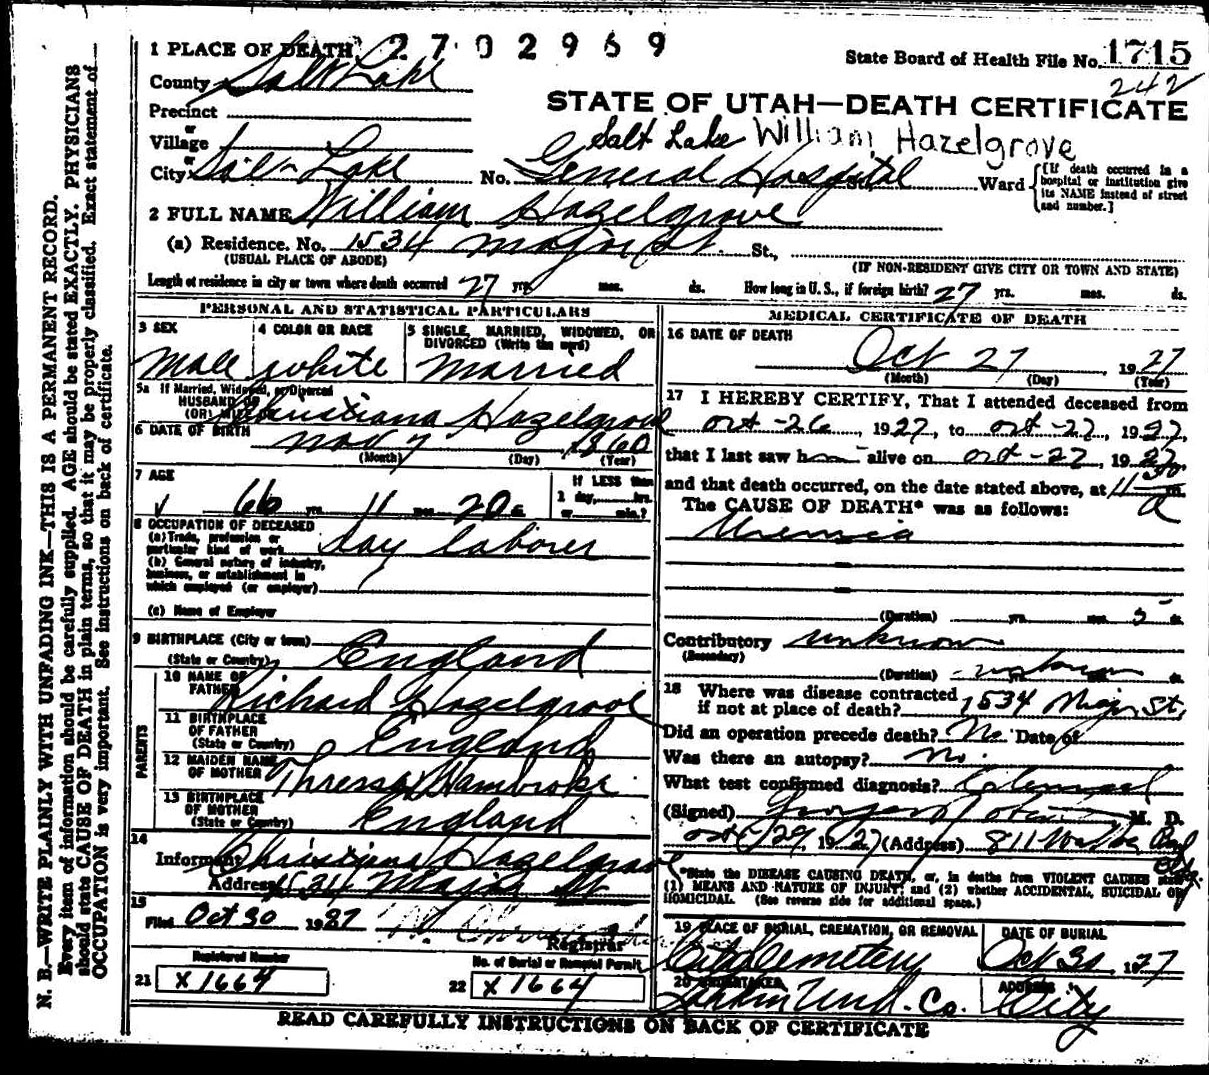 1 PLACE OF DEATH 2702969
State Board of Health File No. 1715
242
County Salt Lake
STATE OF UTAH—DEATH CERTIFICATE
Precinct
or
Village
Salt Lake William Hazelgrove
or
City Salt Lake No. General Hospital St. Ward
[If death occurred in a hospital or institution give its NAME instead of street and number.]
2 FULL NAME William Hazelgrove
(a) Residence. No. 1534 Major St. St.,
(USUAL PLACE OF ABODE) (IF NON-RESIDENT GIVE CITY OR TOWN AND STATE)
Length of residence in city or town where death occurred 27 yrs. mos. ds. How long in U. S., if foreign birth? 27 yrs. mos. ds.
PERSONAL AND STATISTICAL PARTICULARS
3 SEX 4 COLOR OR RACE 5 SINGLE, MARRIED, WIDOWED, OR
DIVORCED (Write the word)
Male white Married
5a If Married, Widowed, or Divorced
HUSBAND OF
(OR) WIFE Christiana Hazelgrove
6 DATE OF BIRTH Nov 7 1860
(Month) (Day) (Year)
7 AGE
If LESS than
66 yrs. 11 mos. 20 1 day, hrs.
or min.?
8 OCCUPATION OF DECEASED
(a) Trade, profession or
particular kind of work day laborer
(b) General nature of industry,
business, or establishment in
which employed (or employer)
(c) Name of Employer
9 BIRTHPLACE (City or town)
(State or Country) England
PARENTS
10 NAME OF
FATHER Richard Hazelgrove
11 BIRTHPLACE
OF FATHER
(State or Country) England
12 MAIDEN NAME
OF MOTHER Thressa
13 BIRTHPLACE
OF MOTHER
(State or Country) England
14
Informant Christiana Hazelgrove
Address 1534 Major St
15
Filed Oct 30 1927
Registrar
Registered Number No. of Burial or Removal Permit
21 X1664 22 X1664
MEDICAL CERTIFICATE OF DEATH
16 DATE OF DEATH
Oct 27, 1927
(Month) (Day) (Year)
17 I HEREBY CERTIFY, That I attended deceased from
oct-26, 1927, to oct-27, 1927,
that I last saw h alive on oct-27, 1927,
and that death occurred, on the date stated above, at 11 50 a m.
The CAUSE OF DEATH* was as follows:
Uremia
(Duration) yrs. mos. 5 ds.
Contributory unknown
(Secondary)
(Duration) unknown
18 Where was disease contracted
if not at place of death? 1534 Major St.
Did an operation precede death? No. Date of
Was there an autopsy? no.
What test confirmed diagnosis?
(Signed) M. D.
oct 29, 1927 (Address) 811
*State the DISEASE CAUSING DEATH, or, in deaths from VIOLENT CAUSES state
(1) MEANS AND NATURE OF INJURY; and (2) whether ACCIDENTAL, SUICIDAL OR
HOMICIDAL. (See reverse side for additional space.)
19 PLACE OF BURIAL, CREMATION, OR REMOVAL DATE OF BURIAL
City Cemetery Oct 30 1927
20 UNDERTAKER ADDRESS
Larkin Und. Co. City
READ CAREFULLY INSTRUCTIONS ON BACK OF CERTIFICATE
N. B.—WRITE PLAINLY WITH UNFADING INK—THIS IS A PERMANENT RECORD.
Every item of information should be carefully supplied. AGE should be stated EXACTLY. PHYSICIANS
should state CAUSE OF DEATH in plain terms, so that it may be properly classified. Exact statement of
OCCUPATION is very important. See instructions on back of certificate.